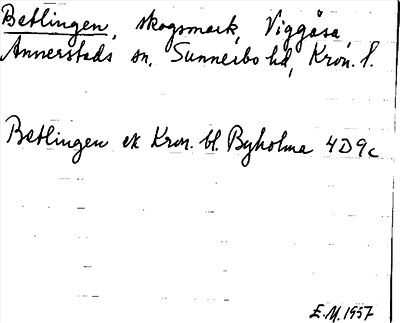 Betlingen, skogsmark, Viggåsa,
Annerstads sn, Sunnerbo hd, Kron. l.
Betlingen ek Kron. bl. Byholma 4D9c
E.M. 1957